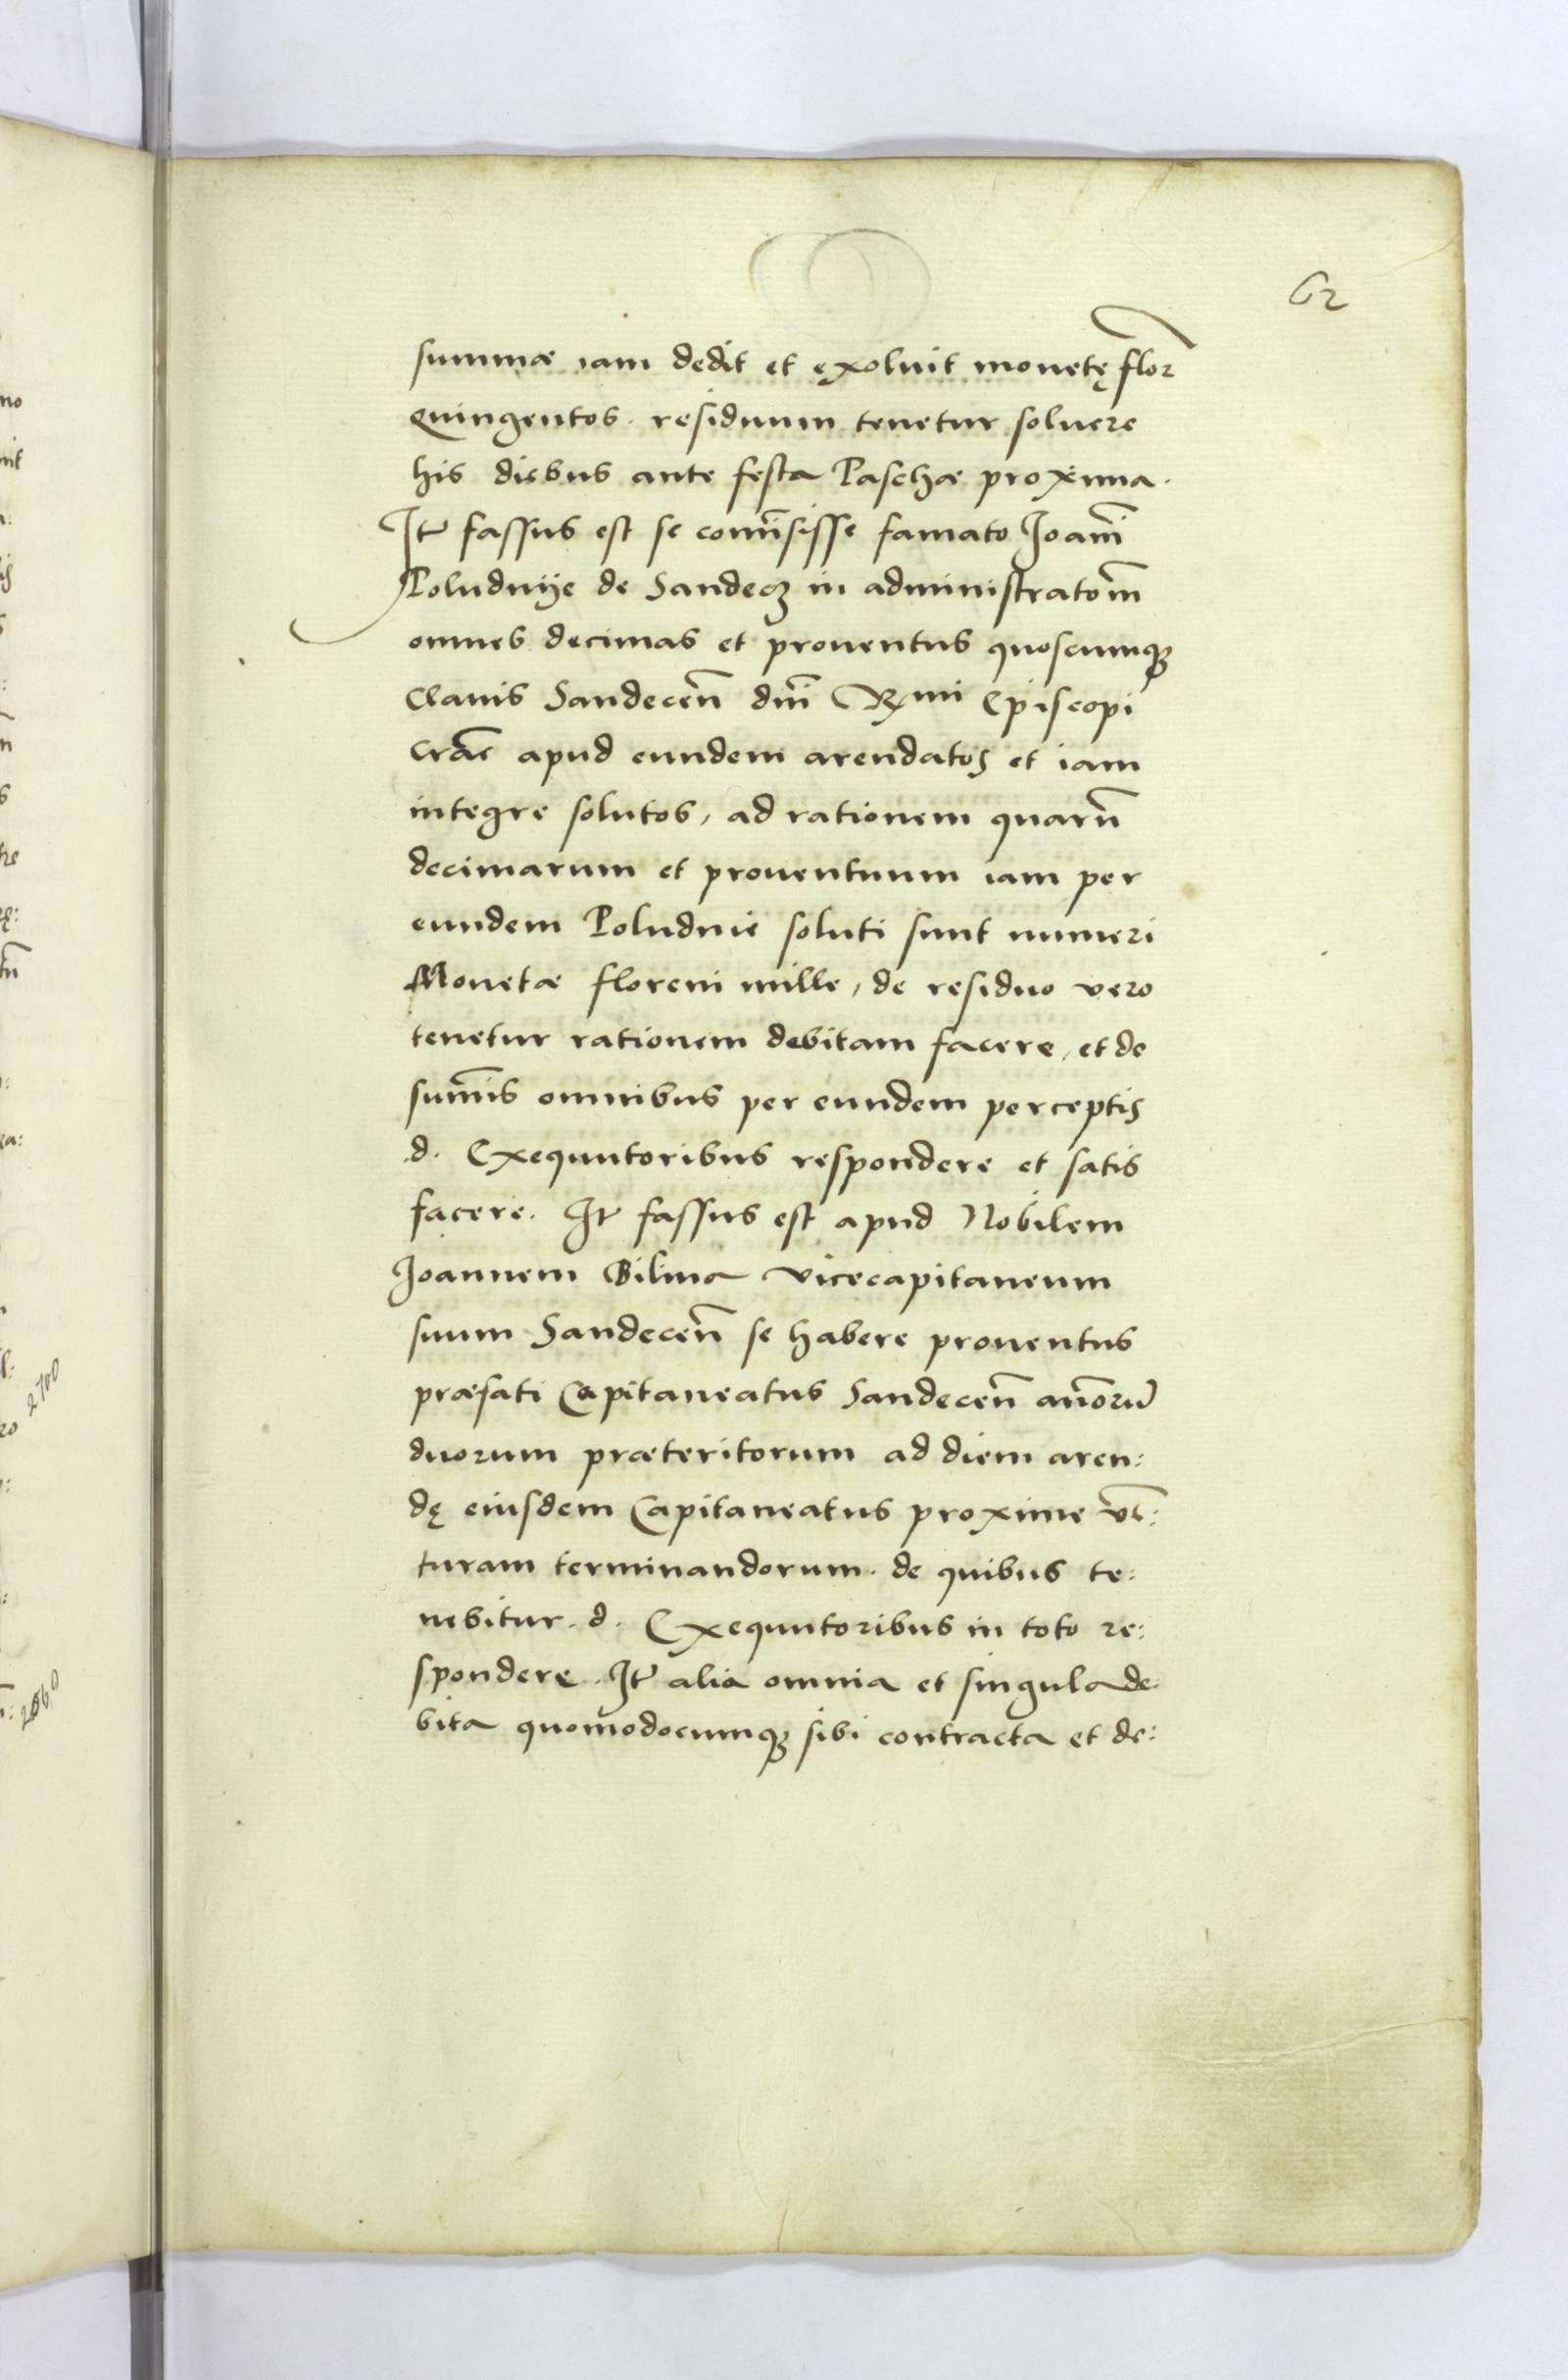 62
summæ iam dedit et exoluit monetę flor
quingentos. residuum tenetur soluere
his diebus ante festa Paschæ proxima.
It̃ fassus est se com̃isisse famato Joañi
Poludnije de Sandecz in administratoẽm
omnes decimas et prouentus quoscumq̧
Clauis Sandeceñ dñi Rmi Episcopi
Crac̃ apud eundem arendatos et iam
integre solutos, ad rationem quarũ
decimarum et prouentuum iam per
eundem Poludnie soluti sunt numeri
Monetæ floreni mille, de residuo vero
tenetur rationem debitam facere, et de
sum̃is omnibus per eundem perceptis
d. Exequutoribus respondere et satis
facere. It̃ fassus est apud Nobilem
Joannem Bilina vicecapitaneum
suum Sandeceñ se habere prouentus
præfati Capitaneatus Sandeceñ añorũ
duorum præteritorum ad diem aren:
dę eiusdem Capitaneatus proxime
turam terminandorum. de quibus te:
nebitur. d. Exequutoribus in toto re:
spondere. It̃ alia omnia et singula de:
bita quomodocumq̧ sibi contracta et de:
2700